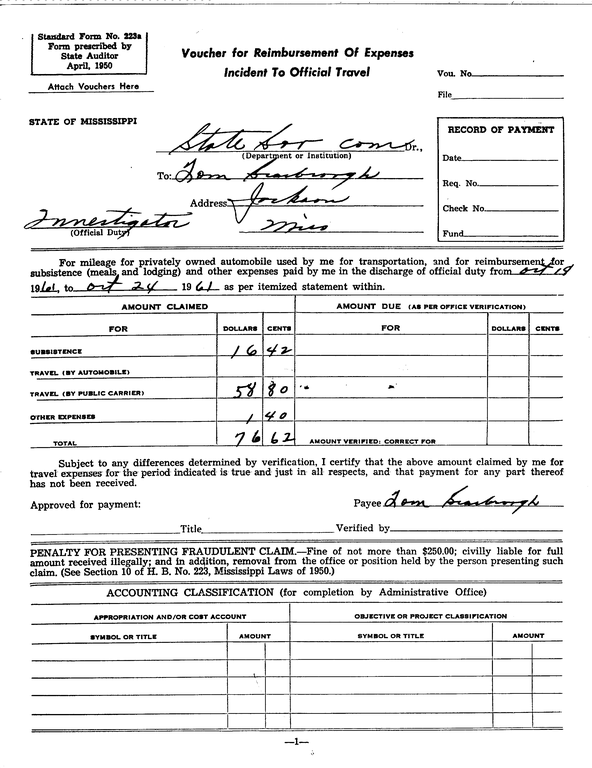 Standard Form No. 223a
Form prescribed by
State Auditor
April, 1950
Attach Vouchers Here
Voucher for Reimbursement Of Expenses
Incident To Official Travel
Vou. No.
File
STATE OF MISSISSIPPI
State Sov Coms Dr.,
(Department or Institution)
To: Tom Scarbrough
Address Jackson
Miss
Investigator
(Official Duty)
RECORD OF PAYMENT
Date
Req. No.
Check No.
Fund
For mileage for privately owned automobile used by me for transportation, and for reimbursement for
subsistence (meals and lodging) and other expenses paid by me in the discharge of official duty from Oct 19
1961, to Oct 24 1961 as per itemized statement within.
AMOUNT CLAIMED AMOUNT DUE (AS PER OFFICE VERIFICATION)
FOR DOLLARS CENTS FOR DOLLARS CENTS
SUBSISTENCE 16 42
TRAVEL (BY AUTOMOBILE)
TRAVEL (BY PUBLIC CARRIER) 58 80
OTHER EXPENSES 1 40
TOTAL 76 62 AMOUNT VERIFIED: CORRECT FOR
Subject to any differences determined by verification, I certify that the above amount claimed by me for
travel expenses for the period indicated is true and just in all respects, and that payment for any part thereof
has not been received.
Approved for payment: Payee Tom Scarbrough
Title Verified by
PENALTY FOR PRESENTING FRAUDULENT CLAIM.—Fine of not more than $250.00; civilly liable for full
amount received illegally; and in addition, removal from the office or position held by the person presenting such
claim. (See Section 10 of H. B. No. 223, Mississippi Laws of 1950.)
ACCOUNTING CLASSIFICATION (for completion by Administrative Office)
APPROPRIATION AND/OR COST ACCOUNT OBJECTIVE OR PROJECT CLASSIFICATION
SYMBOL OR TITLE AMOUNT SYMBOL OR TITLE AMOUNT
—1—